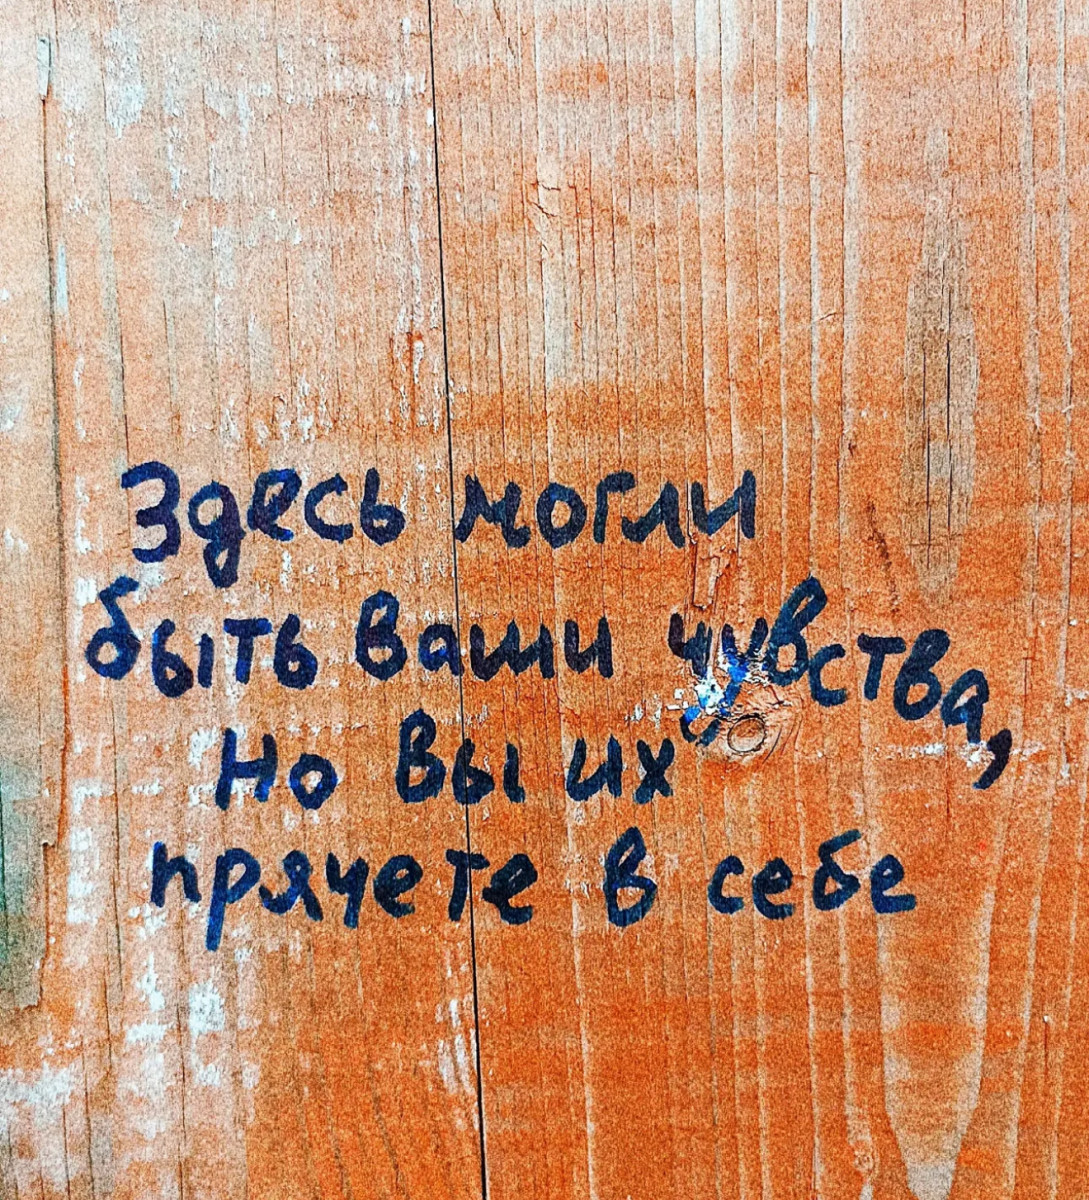 Здесь могли
быть ваши чувства,
Но вы их
прячете в себе